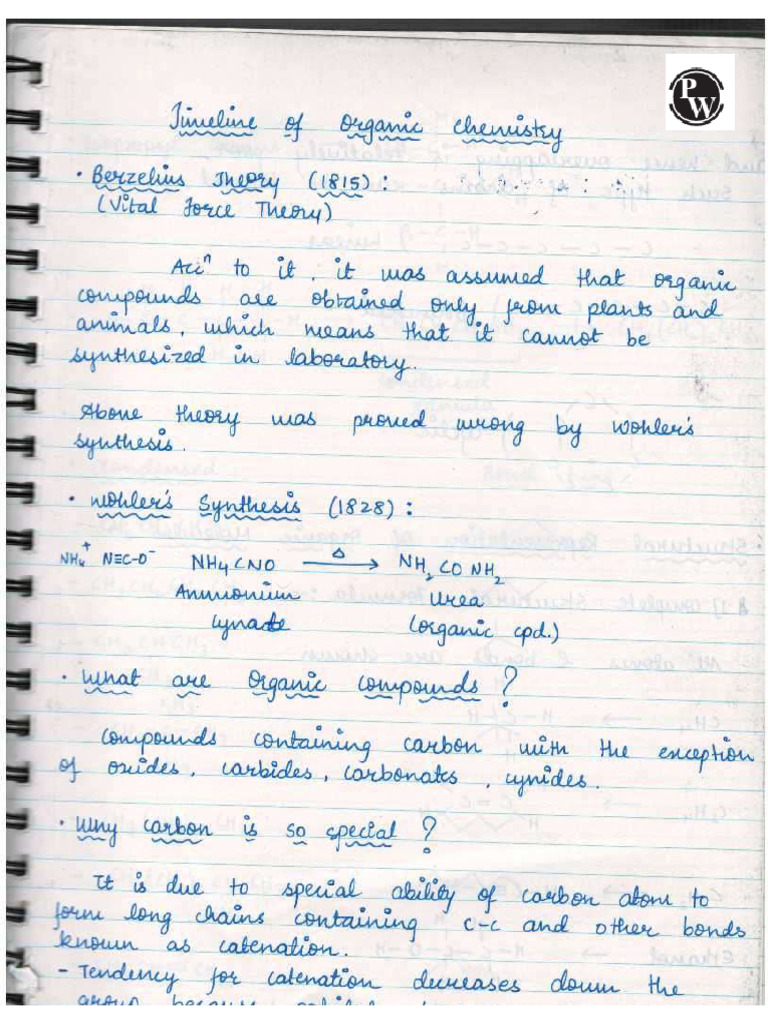 PW
Timeline of Organic Chemistry
• Berzelius Theory (1815) :
(Vital Force Theory)
Accⁿ to it, it was assumed that organic
compounds are obtained only from plants and
animals, which means that it cannot be
synthesized in laboratory.
Above theory was proved wrong by Wohler's
synthesis.
• Wohler's Synthesis (1828) :
NH₄⁺ N≡C-O⁻ NH₄CNO —Δ→ NH₂CONH₂
Ammonium Urea
cynate (organic cpd.)
• What are Organic compounds ?
Compounds containing carbon with the exception
of oxides, carbides, carbonates, cynides.
• Why carbon is so special ?
It is due to special ability of carbon atom to
form long chains containing c-c and other bonds
known as catenation.
- Tendency for catenation decreases down the
group because